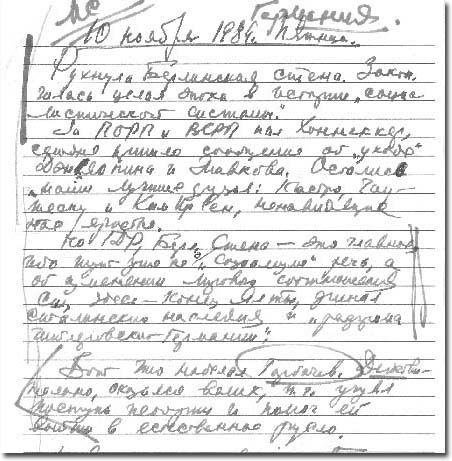 МС Германия.
10 ноября 1989г. Пятница.
Рухнула Берлинская стена. Закон-
чилась целая эпоха в истории "социа-
листической системы".
За ПОРП и ВСРП пал Хонеккер,
сегодня пришло сообщение об "уходе"
Дэн Сяопина и Живкова. Остались
"наши лучшие друзья": Кастро, Чау-
шеску и Ким Ир Сен, ненавидящие
нас яростно.
Но ГДР, Берл. Стена – это главное,
ибо тут уже не о "социализме" речь, а
об изменении мирового соотношения
сил, здесь – конец Ялты, финал
сталинского наследия и "разгрома
гитлеровской Германии".
Вот что наделал Горбачев. Действи-
тельно, оказался велик, т.к. учуял
поступь истории и помог ей
войти в естественное русло.